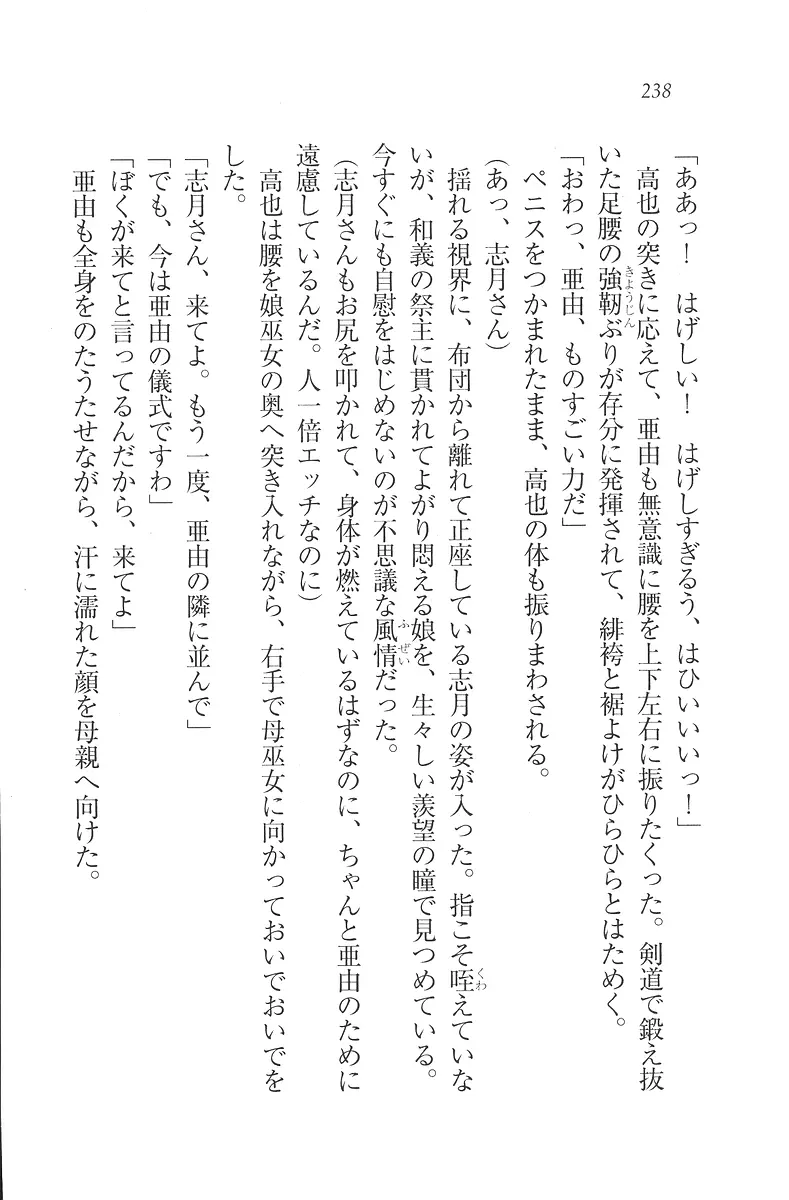 238
「ああっ！　はげしい！　はげしすぎるう、はひいいいっ！」
　高也の突きに応えて、亜由も無意識に腰を上下左右に振りたくった。剣道で鍛え抜
いた足腰の強靭ぶりが存分に発揮されて、緋袴と裾よけがひらひらとはためく。
「おわっ、亜由、ものすごい力だ」
　ペニスをつかまれたまま、高也の体も振りまわされる。
（あっ、志月さん）
　揺れる視界に、布団から離れて正座している志月の姿が入った。指こそ咥えていな
いが、和義の祭主に貫かれてよがり悶える娘を、生々しい羨望の瞳で見つめている。
今すぐにも自慰をはじめないのが不思議な風情だった。
（志月さんもお尻を叩かれて、身体が燃えているはずなのに、ちゃんと亜由のために
遠慮しているんだ。人一倍エッチなのに）
　高也は腰を娘巫女の奥へ突き入れながら、右手で母巫女に向かっておいでおいでを
した。
「志月さん、来てよ。もう一度、亜由の隣に並んで」
「でも、今は亜由の儀式ですわ」
「ぼくが来てと言ってるんだから、来てよ」
　亜由も全身をのたうたせながら、汗に濡れた顔を母親へ向けた。